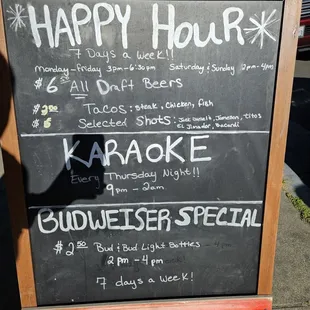 HAPPY HouR
7 Days a Week!!
Monday-Friday 3pm-6:30pm Saturday & Sunday 2pm-4pm
$6.50 All Draft Beers
Tacos: steak, chicken, fish
$6 Selected Shots: Jameson, Titos
El Jimador, Bacardi
KARAOKE
Every Thursday Night!!
9pm - 2am
BUDWEISER SPECIAL
$2.50 Bud & Bud Light Bottles
2pm - 4pm
7 days a week!